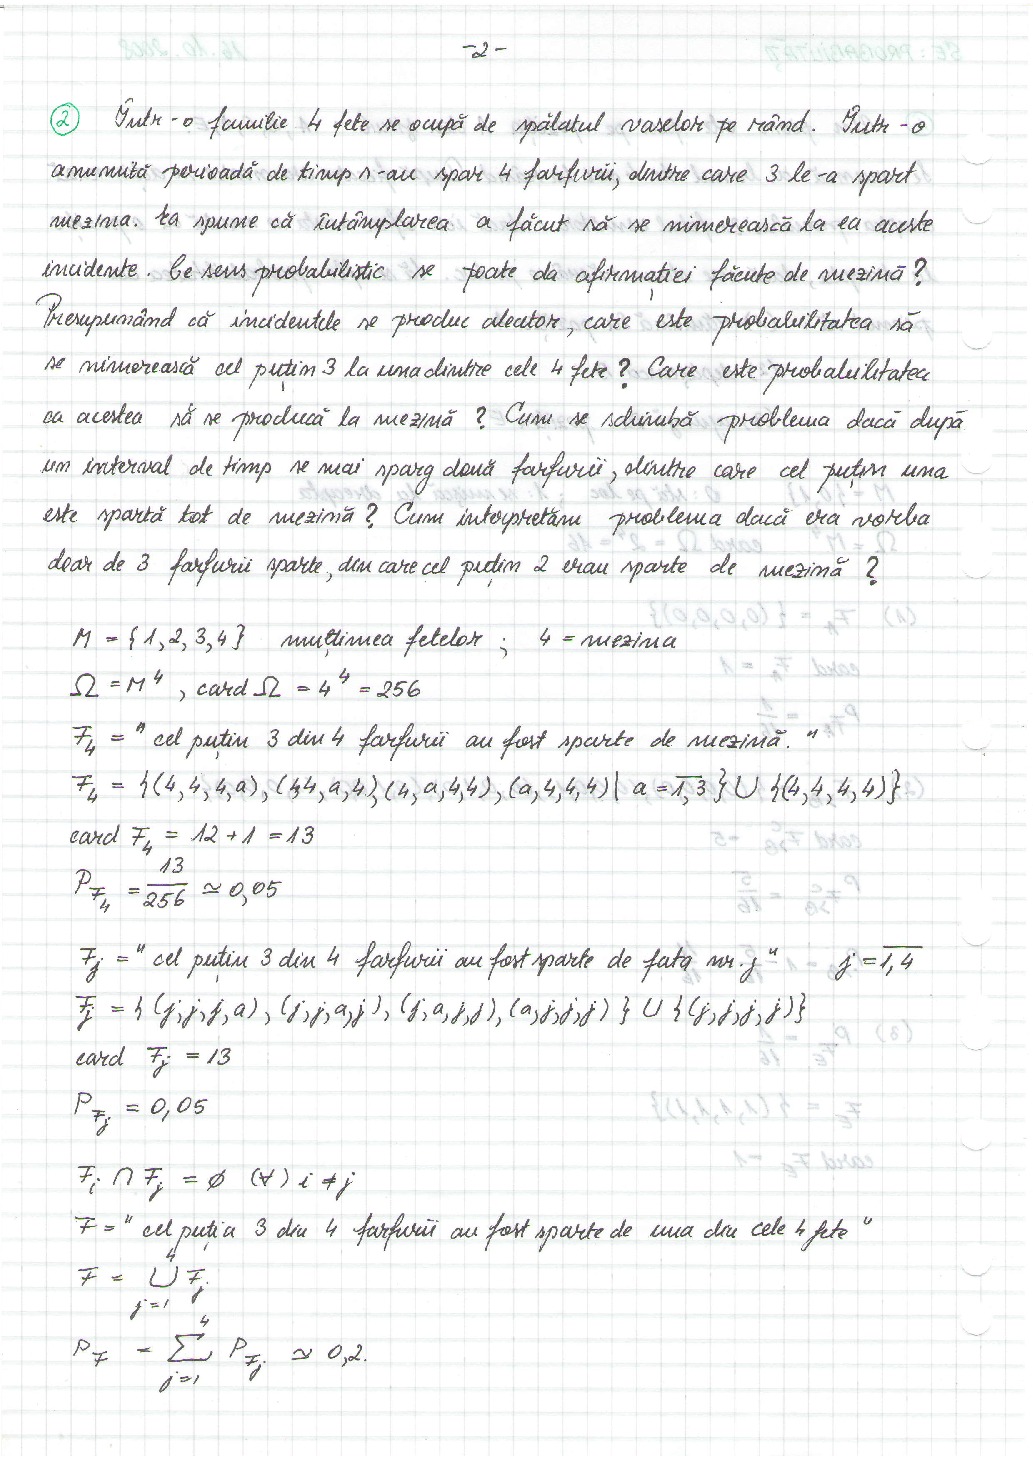 -2-
② Într-o familie 4 fete se ocupă de spălatul vaselor pe rând. Într-o
anumită perioadă de timp s-au spar 4 farfurii, dintre care 3 le-a spart
mezina. Ea spune că întâmplarea a făcut să se nimerească la ea aceste
incidente. Ce sens probabilistic se poate da afirmației făcute de mezină?
Presupunând că incidentele se produc aleator, care este probabilitatea să
se nimerească cel puțin 3 la una dintre cele 4 fete? Care este probabilitatea
ca acestea să se producă la mezină? Cum se schimbă problema dacă după
un interval de timp se mai sparg două farfurii, dintre care cel puțin una
este spartă tot de mezină? Cum interpretăm problema dacă era vorba
doar de 3 farfurii sparte, din care cel puțin 2 erau sparte de mezină?
M = {1,2,3,4} mulțimea fetelor ; 4 = mezina
Ω = M⁴ , card Ω = 4⁴ = 256
F₄ = "cel puțin 3 din 4 farfurii au fost sparte de mezină."
F₄ = {(4,4,4,a), (4,4,a,4), (4,a,4,4), (a,4,4,4) | a = 1,3} ∪ {(4,4,4,4)}
card F₄ = 12 + 1 = 13
P_F₄ = 13/256 ≃ 0,05
Fⱼ = "cel puțin 3 din 4 farfurii au fost sparte de fata nr. j" j = 1,4
Fⱼ = {(j,j,j,a), (j,j,a,j), (j,a,j,j), (a,j,j,j)} ∪ {(j,j,j,j)}
card Fⱼ = 13
P_Fⱼ = 0,05
Fᵢ ∩ Fⱼ = ∅ (∀) i ≠ j
F = "cel puțin 3 din 4 farfurii au fost sparte de una din cele 4 fete"
F = ⋃_{j=1}^{4} Fⱼ
P_F = ∑_{j=1}^{4} P_Fⱼ ≃ 0,2.